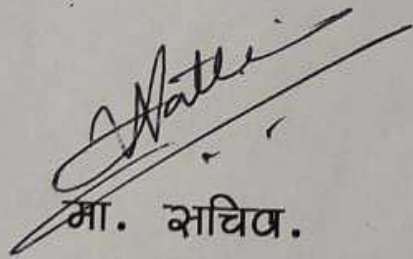 मा. सचिव.